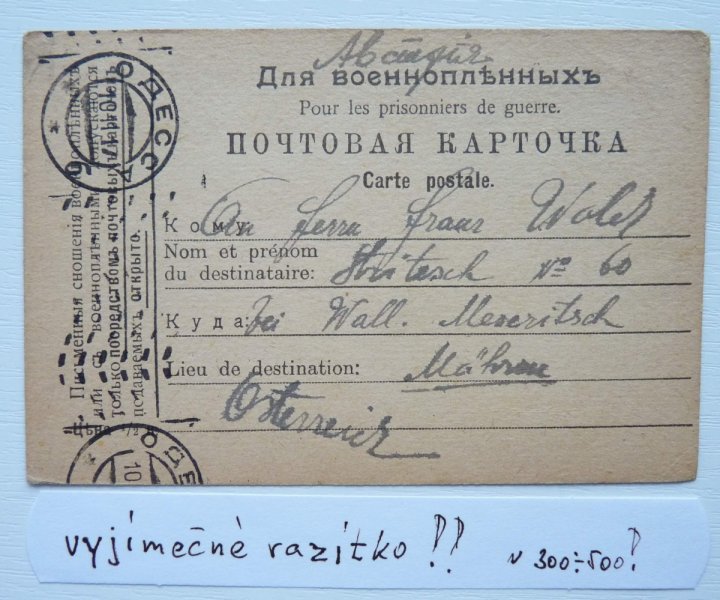 Австрія
Для военноплѣнныхъ
Pour les prisonniers de guerre.
ПОЧТОВАЯ КАРТОЧКА
Carte postale.
Кому: An Herrn Franz Wald
Nom et prénom
du destinataire: Hritesch № 60
Куда: bei Wall. Meseritsch
Lieu de destination: Mähren
Österreich
Письменныя сношенія военноплѣнныхъ
или съ военноплѣнными допускаются
только посредствомъ почтовыхъ карточекъ
подаваемыхъ открыто.
Цѣна 1/2 к.
ОДЕССА
ОДЕ
10
vyjímečné razítko !! N 300÷500!